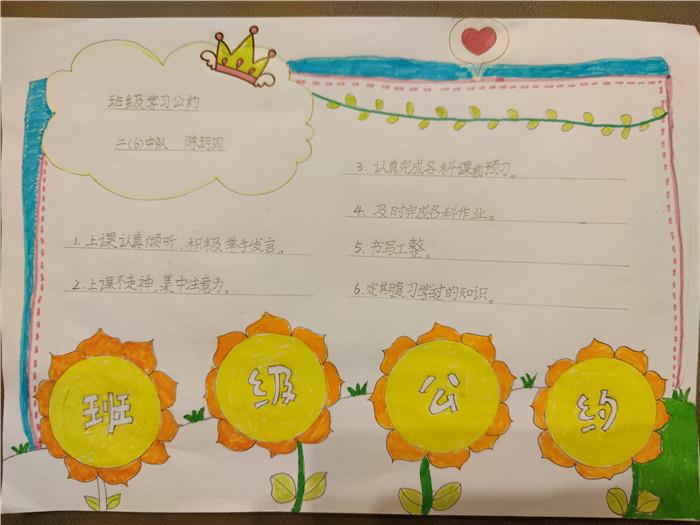 班级学习公约
二(6)中队 陈玥同
1.上课认真倾听、积极举手发言。
2.上课不走神,集中注意力。
3.认真完成各科课前预习。
4.及时完成各科作业。
5.书写工整。
6.定期复习学过的知识。
班级公约